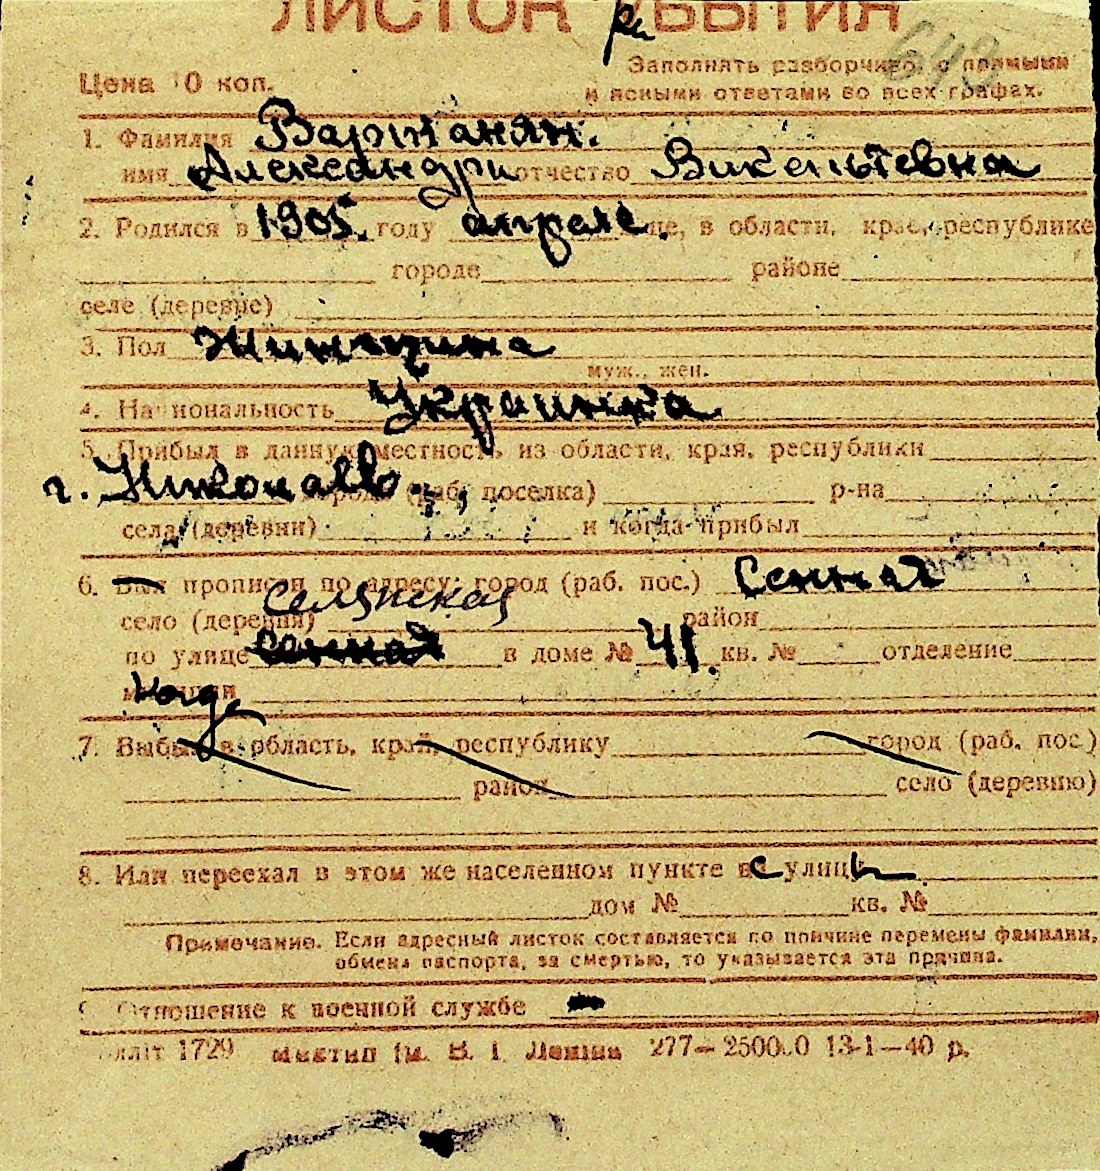 ЛИСТОК УБЫТИЯ
Цена 0 коп.
Заполнять разборчиво, с прямыми
и ясными ответами во всех графах.
1. Фамилия Вартанян.
имя Александри отчество Викентьевна
2. Родился в 1905. году апреле. це, в области, крае, республике
городе районе
селе (деревне)
3. Пол
муж., жен.
4. Национальность Украинка
5. Прибыл в данную местность из области, края, республики
г. Николаево. города (раб. поселка) р-на
села (деревни) и когда прибыл
6. Был прописан по адресу: город (раб. пос.) Сенная
село (деревня) Селянская район
по улице Сенная в доме № 41. кв. № отделение
милиции
7. Выбыл в область, край, республику город (раб. пос.)
район село (деревню)
8. Или переехал в этом же населенном пункте с улицы
дом № кв. №
Примечание. Если адресный листок составляется по причине перемены фамилии,
обмена паспорта, за смертью, то указывается эта причина.
9. Отношение к военной службе
1729 277—2500.0 13-1—40 р.